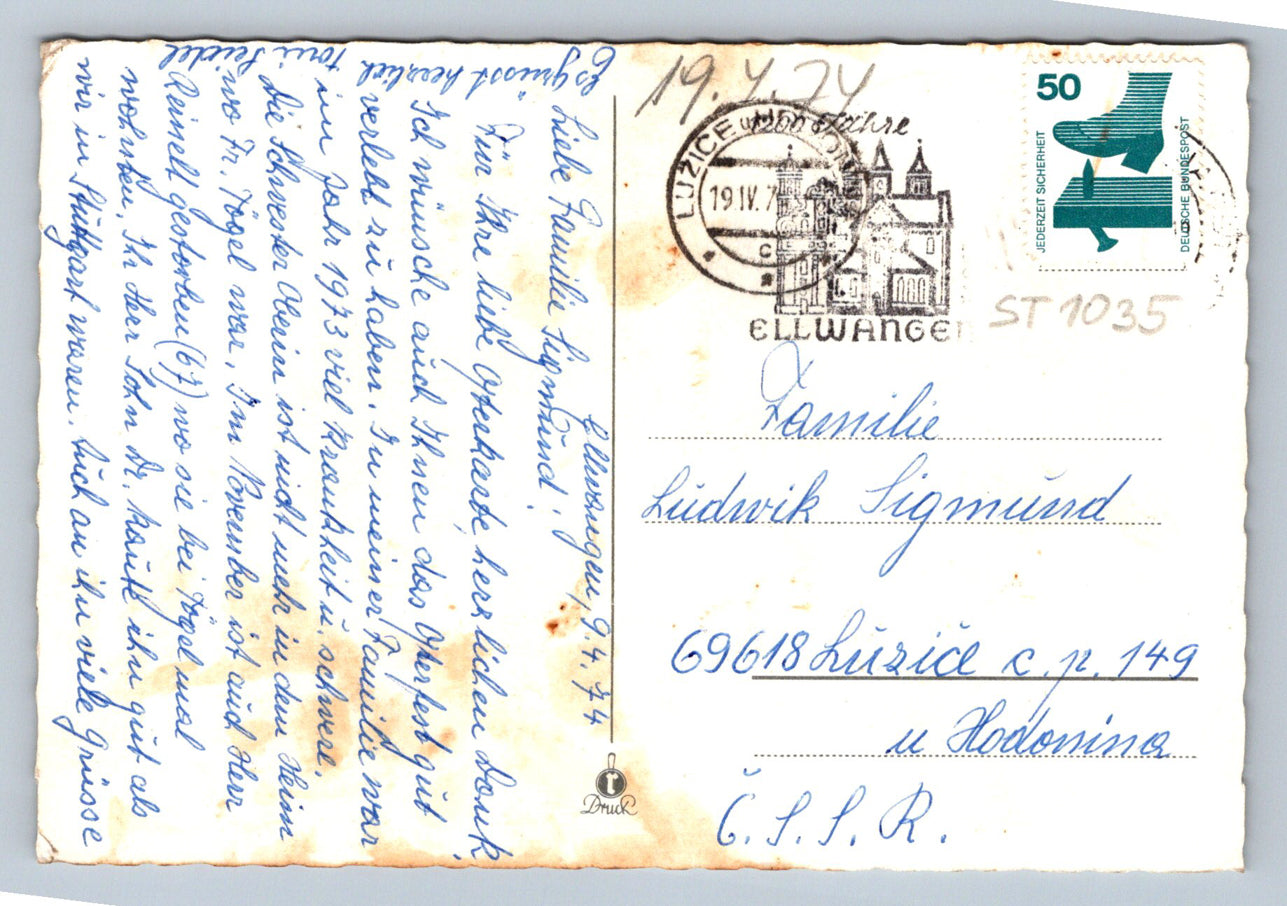 Ellwangen, 9.4.74
Liebe Familie Sigmund!
Für Ihre liebe Osterkarte herzlichen Dank.
Ich wünsche auch Ihnen das Osterfest gut
verlebt zu haben. In meiner Familie war
im Jahr 1973 viel Krankheit u. schwere.
Die Schwester Oberin ist nicht mehr in dem Heim
wo Fr. Vögel war. Im November ist auch Herr
gestorben (67) wo sie bei Vögel mal
wohnten. Ihr Herr Sohn Dr. kannte ihn gut als
wir in Stuttgart waren. Auch an ihn viele Grüsse
Es grüsst herzlich
Seidel
19.4.74
LUŽICE U HODONÍNA
19.IV.7
C
1200 Jahre
ELLWANGEN
50
JEDERZEIT SICHERHEIT
DEUTSCHE BUNDESPOST
ST 1035
Familie
Ludwik Sigmund
69618 Lužice c.p. 149
u Hodonina
Č.S.S.R.
r
Druck